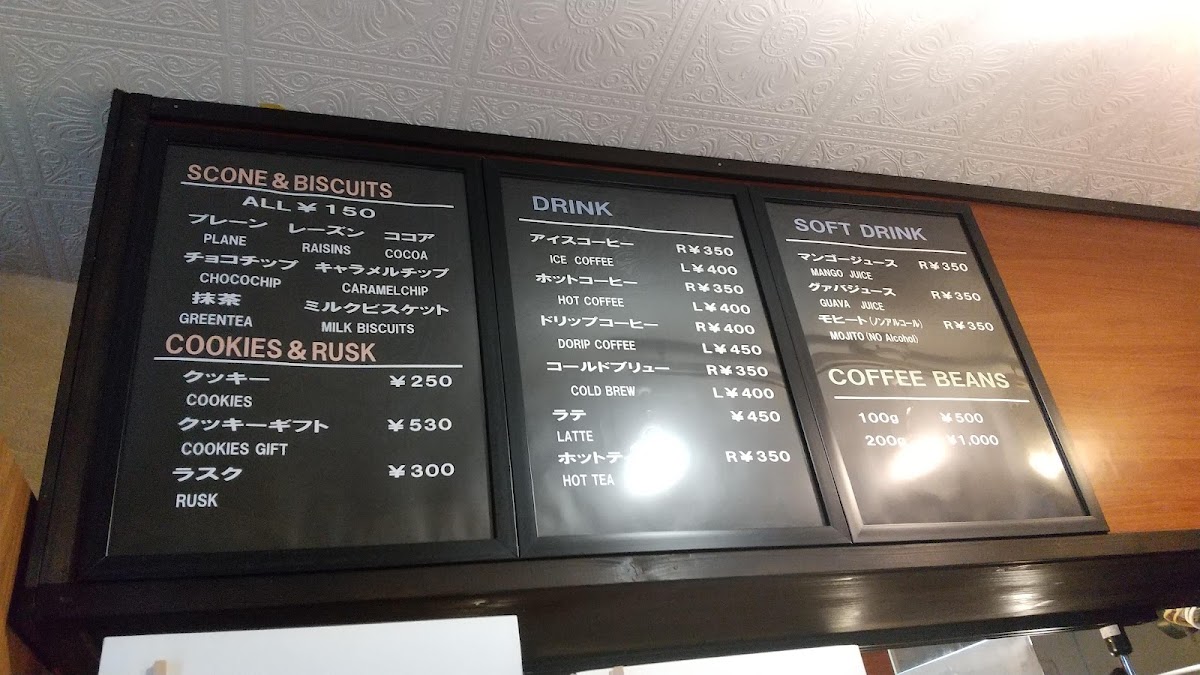 SCONE & BISCUITS
ALL ¥150
プレーン レーズン ココア
PLANE RAISINS COCOA
チョコチップ キャラメルチップ
CHOCOCHIP CARAMELCHIP
抹茶 ミルクビスケット
GREENTEA MILK BISCUITS
COOKIES & RUSK
クッキー ¥250
COOKIES
クッキーギフト ¥530
COOKIES GIFT
ラスク ¥300
RUSK
DRINK
アイスコーヒー R¥350
ICE COFFEE L¥400
ホットコーヒー R¥350
HOT COFFEE L¥400
ドリップコーヒー R¥400
DORIP COFFEE L¥450
コールドブリュー R¥350
COLD BREW L¥400
ラテ ¥450
LATTE
ホットテ R¥350
HOT TEA
SOFT DRINK
マンゴージュース R¥350
MANGO JUICE
グァバジュース R¥350
GUAVA JUICE
モヒート(ノンアルコール) R¥350
MOJITO (NO Alcohol)
COFFEE BEANS
100g ¥500
200g ¥1,000